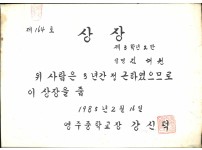 제 164 호
상 상
제 3 학년 2 반
성명 김 재 원
위 사람은 3년간 정근하였으므로
이 상장을 줌
1985년 2월 16일
영주중학교장 강 신